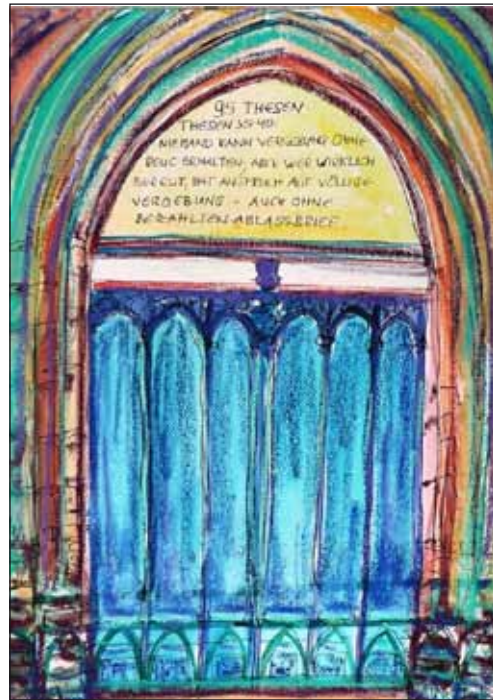 95 THESEN
THESEN 35-40:
NIEMAND KANN VERGEBUNG OHNE
REUE ERHALTEN. ABER WER WIRKLICH
BEREUT, HAT ANSPRUCH AUF VÖLLIGE
VERGEBUNG - AUCH OHNE
BEZAHLTEN ABLASSBRIEF